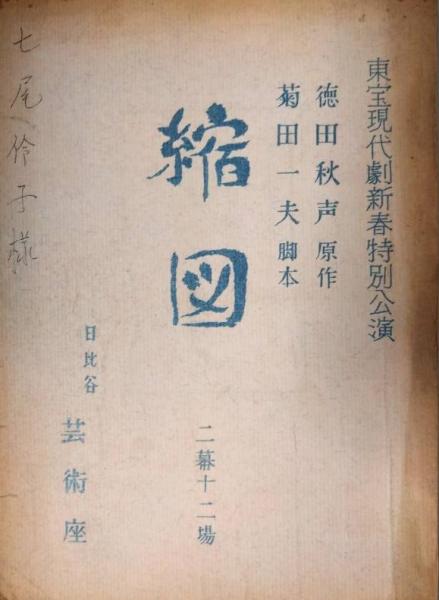 東宝現代劇新春特別公演
徳田秋声 原作
菊田一夫 脚本
縮図
二幕十二場
日比谷 芸術座
七尾伶子様